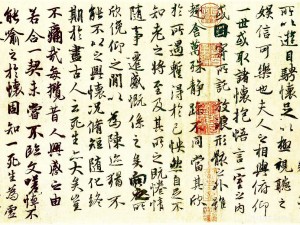 所以遊目騁懷足以極視聽之
娛信可樂也夫人之相與俯仰
一世或取諸懷抱悟言一室之內
或因寄所託放浪形骸之外雖
趣舍萬殊靜躁不同當其欣
於所遇暫得於己快然自足不
知老之將至及其所之既惓情
隨事遷感慨係之矣向之所
欣俛仰之閒以為陳迹猶不
能不以之興懷況脩短隨化終
期於盡古人云死生亦大矣豈
不痛哉每攬昔人興感之由
若合一契未嘗不臨文嗟悼不
能喻之於懷固知一死生為虛